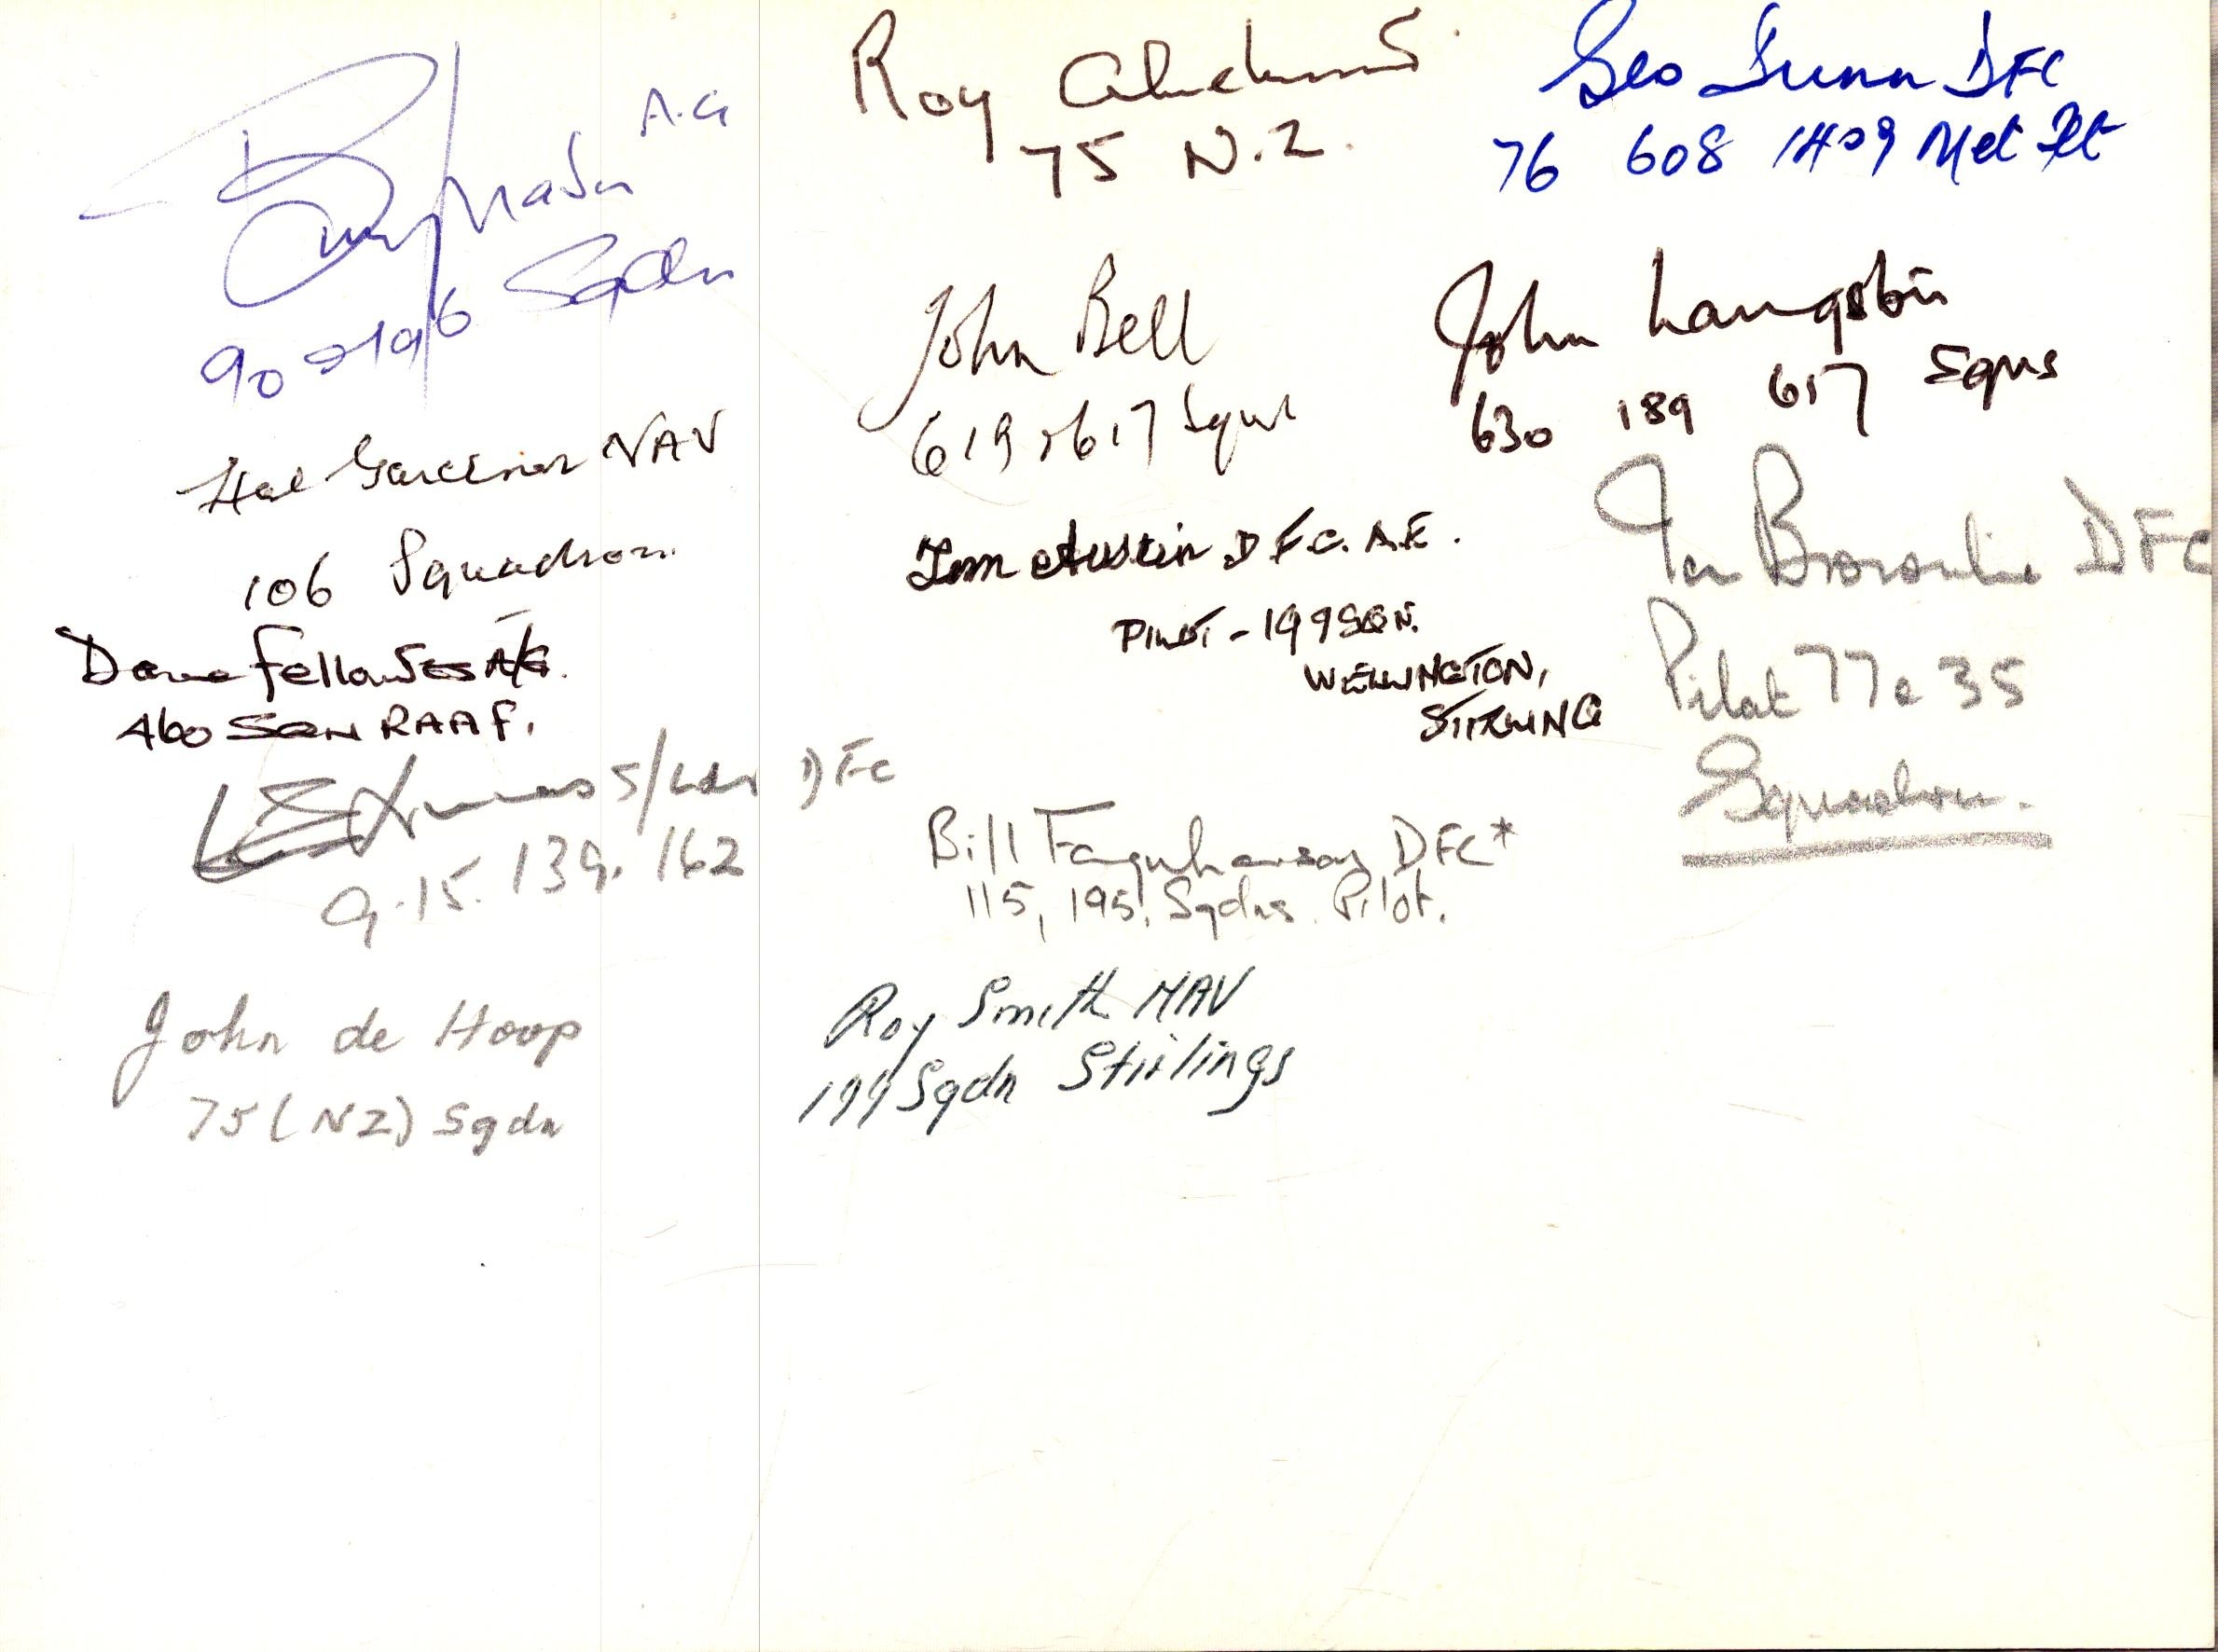 A.G
90 & 196 Sqdn
Hal Gardner NAV
106 Squadron
Dave Fellowes A/G.
460 SQN RAAF.
S/Ldr DFC
9. 15. 139. 162
John de Hoop
75 (NZ) Sqdn
Roy
75 N.Z.
John Bell
619 & 617 Sqns
Tom Austin D.F.C. A.E.
PILOT - 199 SQN.
WELLINGTON,
STIRLING
Bill Farquharson DFC*
115, 195, Sqdns. Pilot.
Roy Smith NAV
199 Sqdn Stirlings
Geo Dunn DFC
76 608 1409 Met Flt
John Langston
630 189 617 Sqns
Ian DFC
Pilot 77 & 35
Squadron.